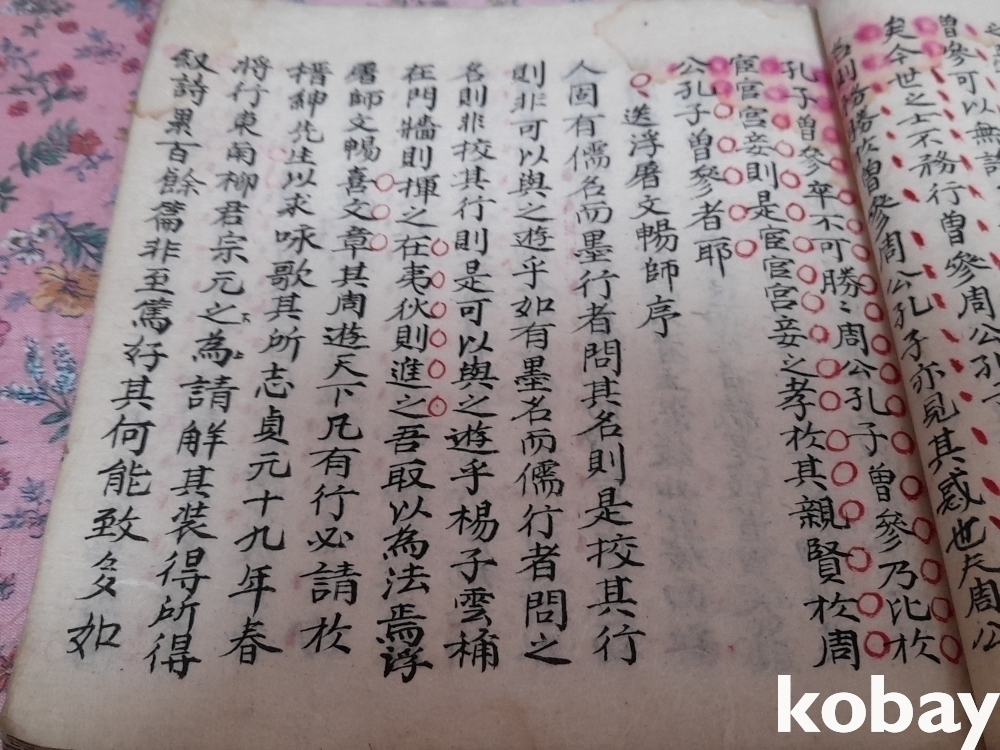 曾參可以無譏
矣今世之士不務行曾參周公孔
則務勝扵曾參周公孔子亦見其惑也夫周公
孔子曾參卒不可勝〻周公孔子曾參乃比扵
宦官宮妾則是宦官宮妾之孝扵其親賢扵周
公孔子曾參者耶
送浮屠文暢師序
人固有儒名而墨行者問其名則是挍其行
則非可以與之遊乎如有墨名而儒行者問之
名則非挍其行則是可以與之遊乎楊子雲稱
在門牆則揮之在夷狄則進之吾取以為法焉浮
屠師文暢喜文章其周遊天下凡有行必請扵
搢紳先生以求咏歌其所志貞元十九年春
將行東南柳君宗元之為請解其裝得所得
叙詩累百餘篇非至篤好其何能致多如
kobay